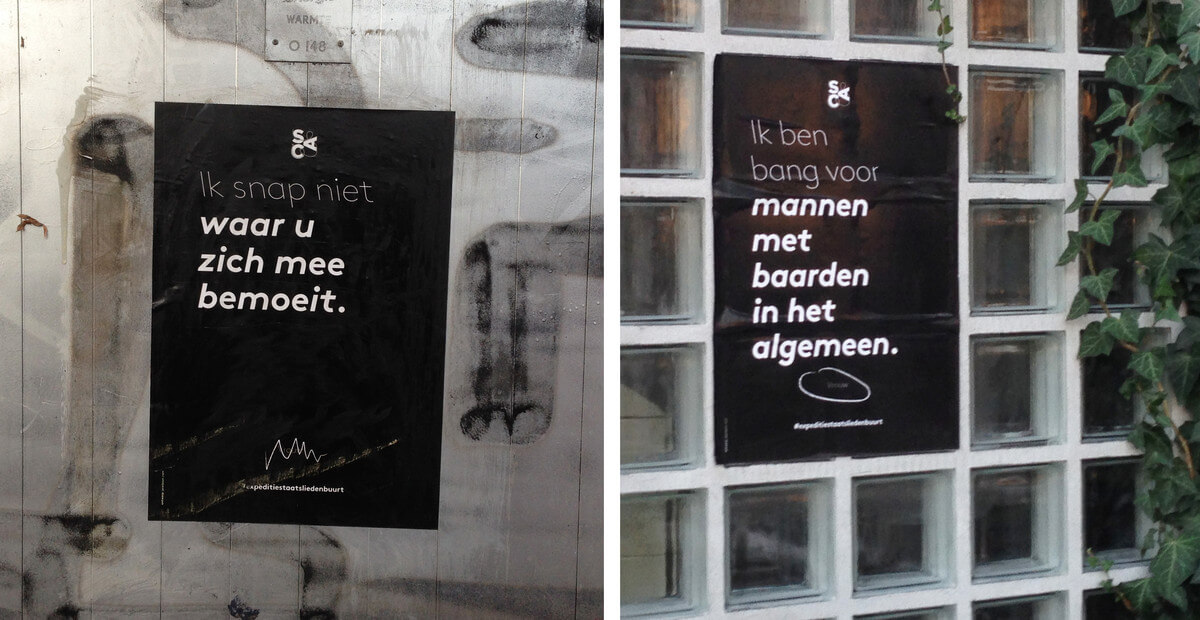 WARMTE
O 148
S&
CA
Ik snap niet
waar u
zich mee
bemoeit.
#expeditiestaatsliedenbuurt
S&
CA
Ik ben
bang voor
mannen
met
baarden
in het
algemeen.
#expeditiestaatsliedenbuurt